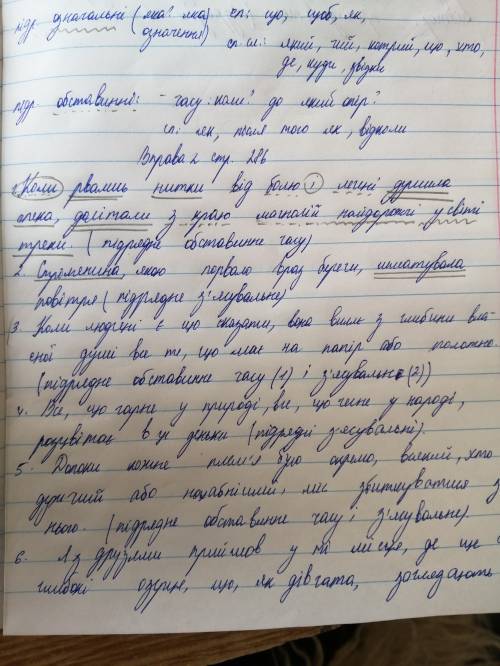 підр. означальні (яка? яка
означення) сп: що, щоб, як,
сп. сл.: який, чий, котрий, що, хто,
де, куди, звідки
підр. обставинні: - часу: коли? до
сп: як, після того як, відколи
Вправа 2 стр. 286
Коли рвались нитки від болю і легені душила
спека, долітали з краю магнолій найдорожчі у світі
треки. (підрядне обставинне часу)
2. Стрємянина, якою порвало берега, шматувала
повітря (підрядне з'ясувальне)
3. Коли людині є що сказати, вона виллє з глибини вла-
сної душі все те, що має на папір або полотно.
(підрядне обставинне часу (1) і з'ясувальне (2))
4. Все, що гарне у природі, все, що чесне у народі,
розцвітає в ці деньки (підрядні з'ясувальні).
5. Допоки кожне плем'я було окремо, всякий, хто
дужчий або нахабніший, міг збиткуватися з
нього. (підрядне обставинне часу і з'ясувальне).
6. А з друзями прийшов у те місце, де ще є
глибокі озерце, що, як дівчата, заглядають